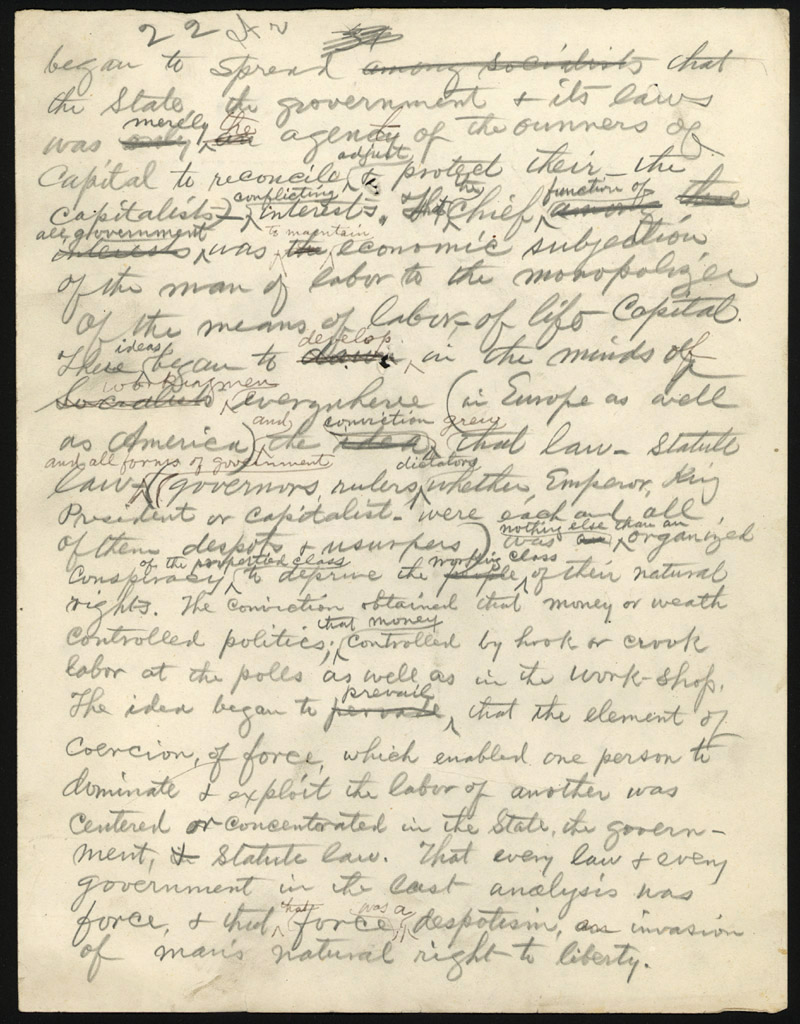 22
began to spread among socialists that
the State, the government & its laws
was merely the agency of the owners of
Capital to reconcile, adjust & protect their — the
Capitalists — conflicting interests. That the chief function of
all government was to maintain economic subjection
of the man of labor to the monopolizer
of the means of labor, of life — Capital.
These ideas began to develop, in the minds of
workingmen everywhere (in Europe as well
as America) and the conviction grew that law — Statute
law and all forms of government (governors, rulers, dictators whether, Emperor, King
President or capitalist — were each and all
of them despots & usurpers) was nothing else than an organized
Conspiracy of the propertied class to deprive the working class of their natural
rights. The conviction obtained that money or wealth
controlled politics; that money controlled by hook or crook
labor at the polls as well as in the work-shop.
The idea began to prevail, that the element of
coercion, of force, which enabled one person to
dominate & exploit the labor of another was
centered or concentorated in the State, the govern-
ment, & statute law. That every law & every
government in the last analysis was
force, & that that force was a despotism, an invasion
of man's natural right to liberty.